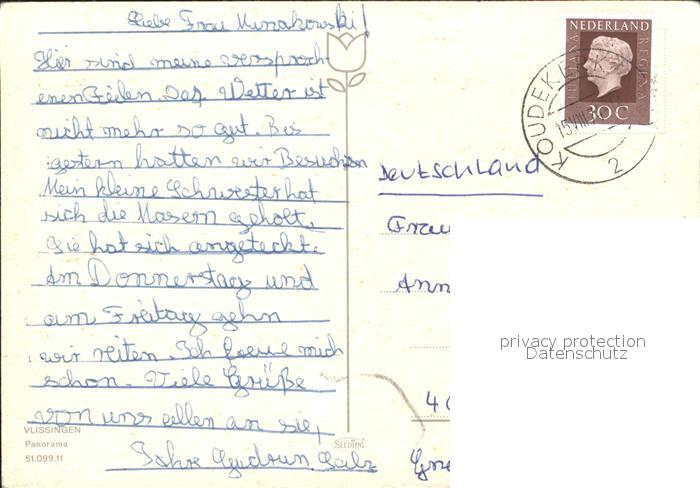 Liebe Frau Minakowski!
Hir sind meine versproch-
enen Zeilen. Das Wetter ist
nicht mehr so gut. Bis
gestern hatten wir Besuch
Mein kleine Schwester hat
sich die Masern geholt.
Sie hat sich angeteckt.
Am Donnerstag und
am Freitag gehn
wir reiten. Ich freue mich
schon. Viele Grüße
von uns allen an sie,
Ihre Gudrun
VLISSINGEN
Panorama
51.099.11
SLEDING
NEDERLAND
JULIANA REGINA
30 C
KOUDEKERK
15 VIII
2
Deutschland
Frau
Ann
privacy protection
Datenschutz
4